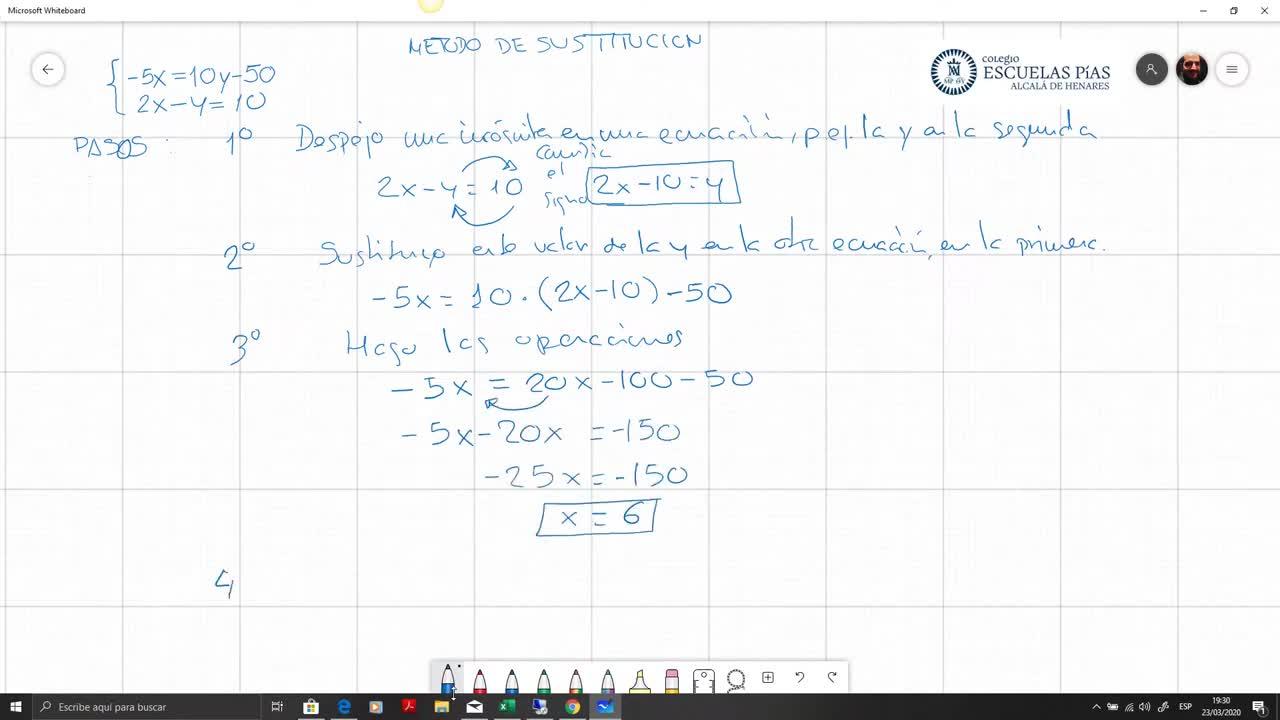 Microsoft Whiteboard
METODO DE SUSTITUCION
colegio
ESCUELAS PÍAS
ALCALÁ DE HENARES
-5x=10y-50
2x-y=10
PASOS :
1º Despejo una incógnita en una ecuación, p ej. la y en la segunda
2x-y=10
cambia
el
signo
2x-10=y
2º Sustituyo este valor de la y en la otra ecuación, en la primera.
-5x= 10·(2x-10)-50
3º Hago las operaciones
-5x = 20x-100-50
-5x-20x =-150
-25x=-150
x = 6
4
Escribe aquí para buscar
ESP
19:30
23/03/2020